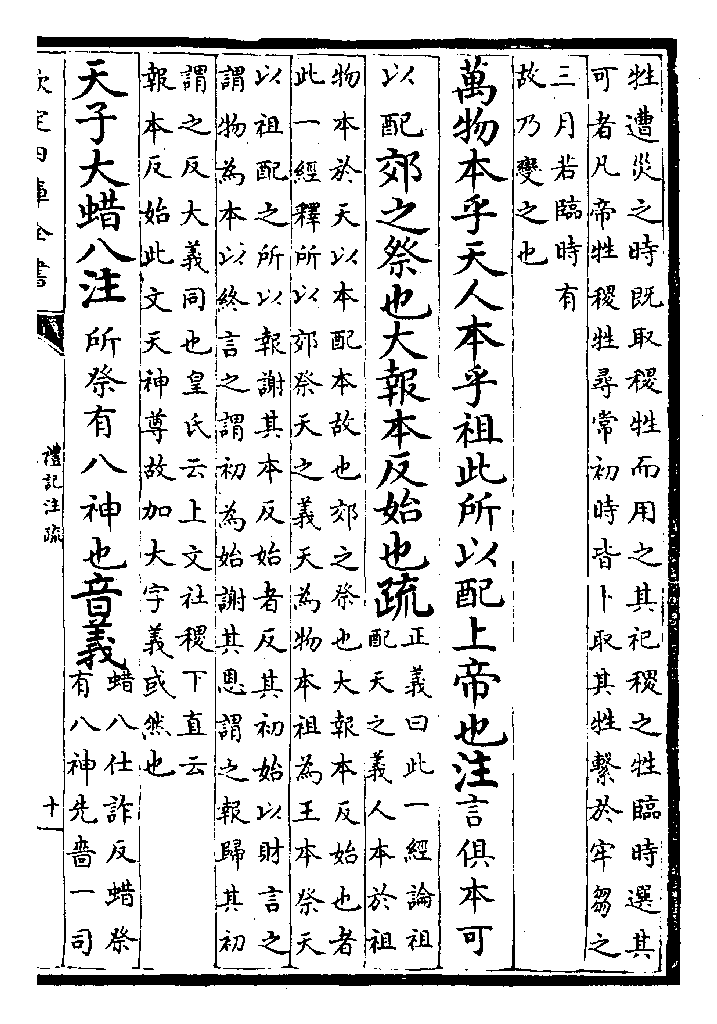 牲遭災之時既取稷牲而用之其祀稷之牲臨時選其
可者凡帝牲稷牲尋常初時皆卜取其牲繫於牢芻之
三月若臨時有
故乃變之也
萬物本乎天人本乎祖此所以配上帝也注言俱本可
以配郊之祭也大報本反始也疏
正義曰此一經論祖
配天之義人本於祖
物本於天以本配本故也郊之祭也大報本反始也者
此一經釋所以郊祭天之義天為物本祖為王本祭天
以祖配之所以報謝其本反始者反其初始以財言之
謂物為本以終言之謂初為始謝其恩謂之報歸其初
謂之反大義同也皇氏云上文社稷下直云
報本反始此文天神尊故加大字義或然也
天子大蜡八注所祭有八神也音義
蜡八仕詐反蜡祭
有八神先嗇一司
欽定四庫全書
禮記注疏
十